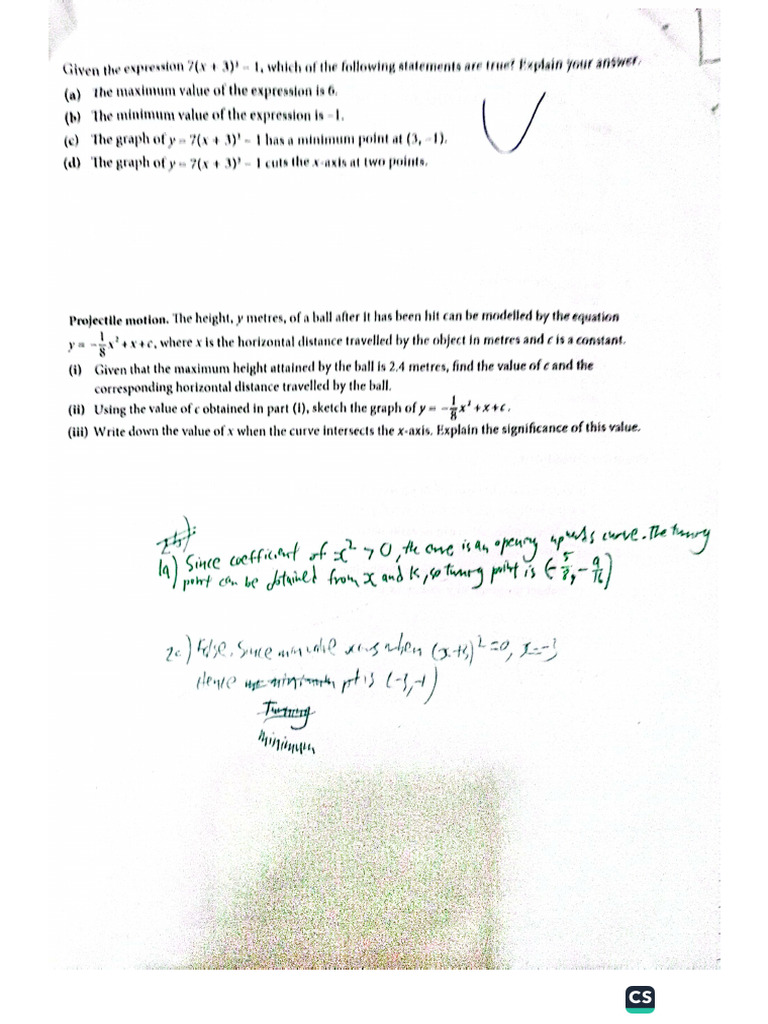 Given the expression 7(x + 3)² – 1, which of the following statements are true? Explain your answer.
(a) The maximum value of the expression is 6.
(b) The minimum value of the expression is –1.
(c) The graph of y = 7(x + 3)² – 1 has a minimum point at (3, –1).
(d) The graph of y = 7(x + 3)² – 1 cuts the x-axis at two points.
Projectile motion. The height, y metres, of a ball after it has been hit can be modelled by the equation
y = –1/8x² + x + c, where x is the horizontal distance travelled by the object in metres and c is a constant.
(i) Given that the maximum height attained by the ball is 2.4 metres, find the value of c and the
corresponding horizontal distance travelled by the ball.
(ii) Using the value of c obtained in part (i), sketch the graph of y = –1/8x² + x + c.
(iii) Write down the value of x when the curve intersects the x-axis. Explain the significance of this value.
1a) Since coefficient of x² > 0, the curve is an opening upwards curve. The turning
point can be obtained from x and k, so turning point is (-5/8, -9/16)
2c) False. Since min value when (x+3)²=0, x=-3
Hence minimum pt is (-3,-1)
Turning
minimum
CS